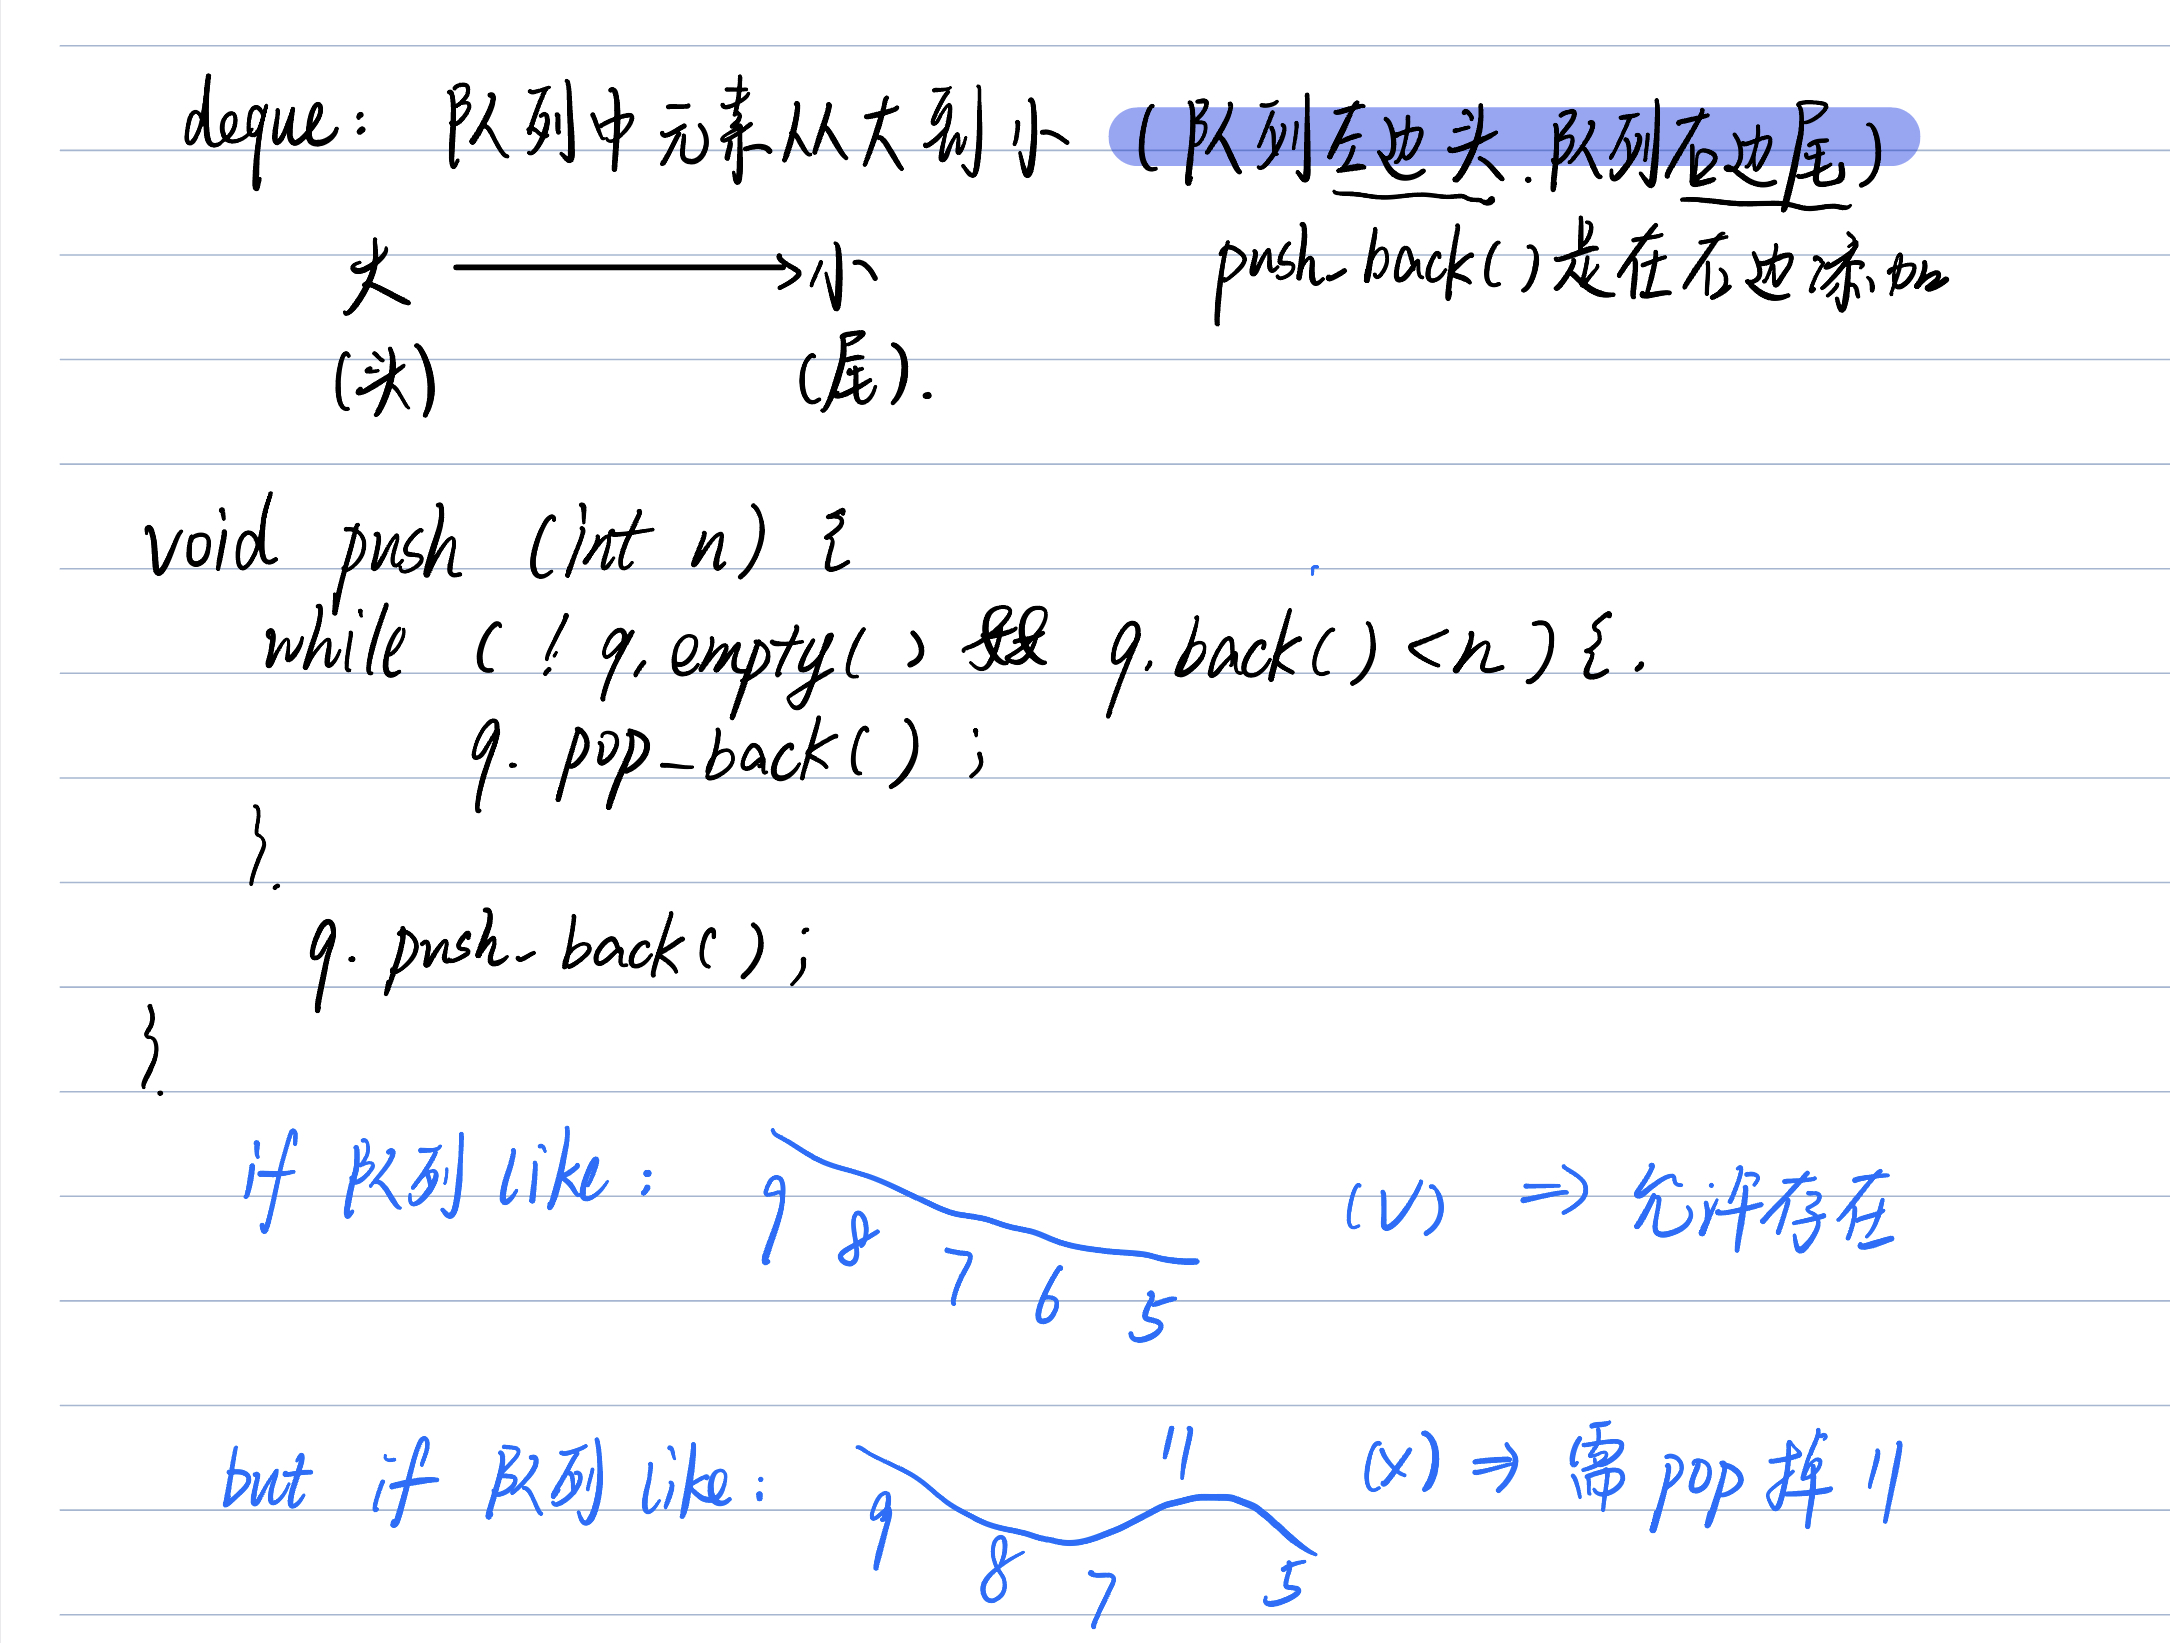 deque: 队列中元素从大到小 (队列左边头.队列右边尾)
大 → 小 push-back()是在右边添加
(头) (尾).
void push (int n) {
while (! q.empty() && q.back() < n) {.
q. pop_back() ;
}.
q. push-back() ;
}.
if 队列 like: 9 8 7 6 5 (√) ⇒ 允许存在
but if 队列 like: 9 8 7 11 5 (×) ⇒ 需 pop 掉 11